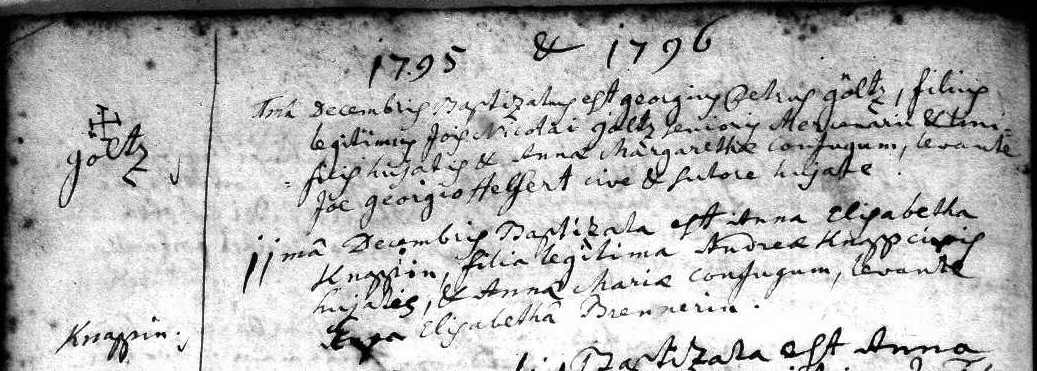 1795 & 1796
göltz
Decembris Baptizatus est georgius Petrus göltz, filius
legitimus Jois Nicolai göltz senioris Mercenarii & lani-
ficis hujatis & Annæ Margarethæ conjugum, levante
Joe georgio Helfert cive & sutore hujate.
11mâ Decembris Baptizata est Anna Elisabetha
Knappin, filia legitima Andreæ Knapp civis
hujatis, & Annæ Mariæ conjugum, levante
Elisabethâ Brennerin.
Knappin.
Baptizata est Anna